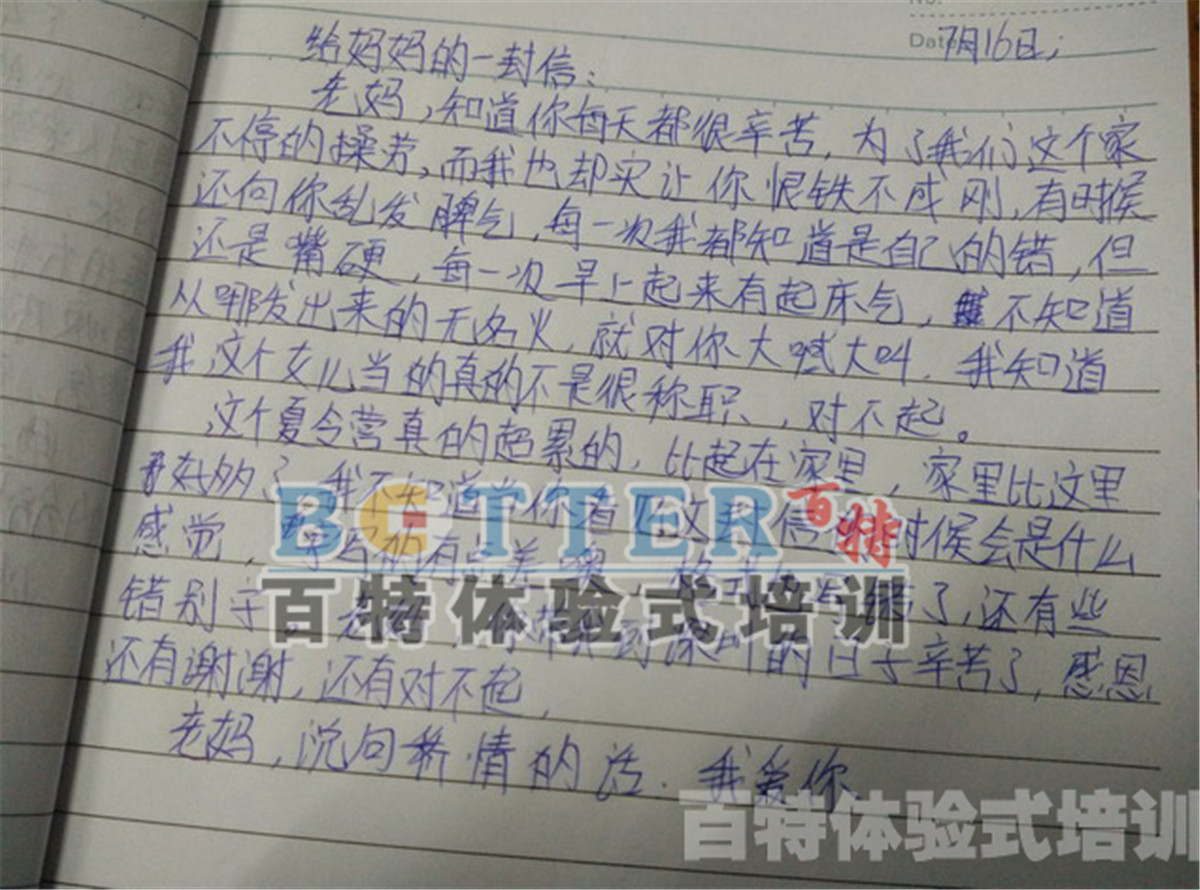 Date
7月16日;
给妈妈的一封信:
老妈,知道你每天都很辛苦,为了我们这个家
不停的操劳,而我也却实让你恨铁不成刚,有时候
还向你乱发脾气,每一次我都知道是自己的错,但
还是嘴硬,每一次早上起来有起床气,不知道
从哪发出来的无名火,就对你大喊大叫,我知道
我这个女儿当的真的不是很称职、,对不起。
这个夏令营真的超累的,比起在家里,家里比这里
好多了,我不知道当你看见这封信的时候会是什么
感觉,写的有点差 了,还有些
错别字,老妈,你 的日子辛苦了,感恩
还有谢谢,还有对不起,
老妈,说句矫情的话.我爱你
BETTER百特
百特体验式培训
百特体验式培训